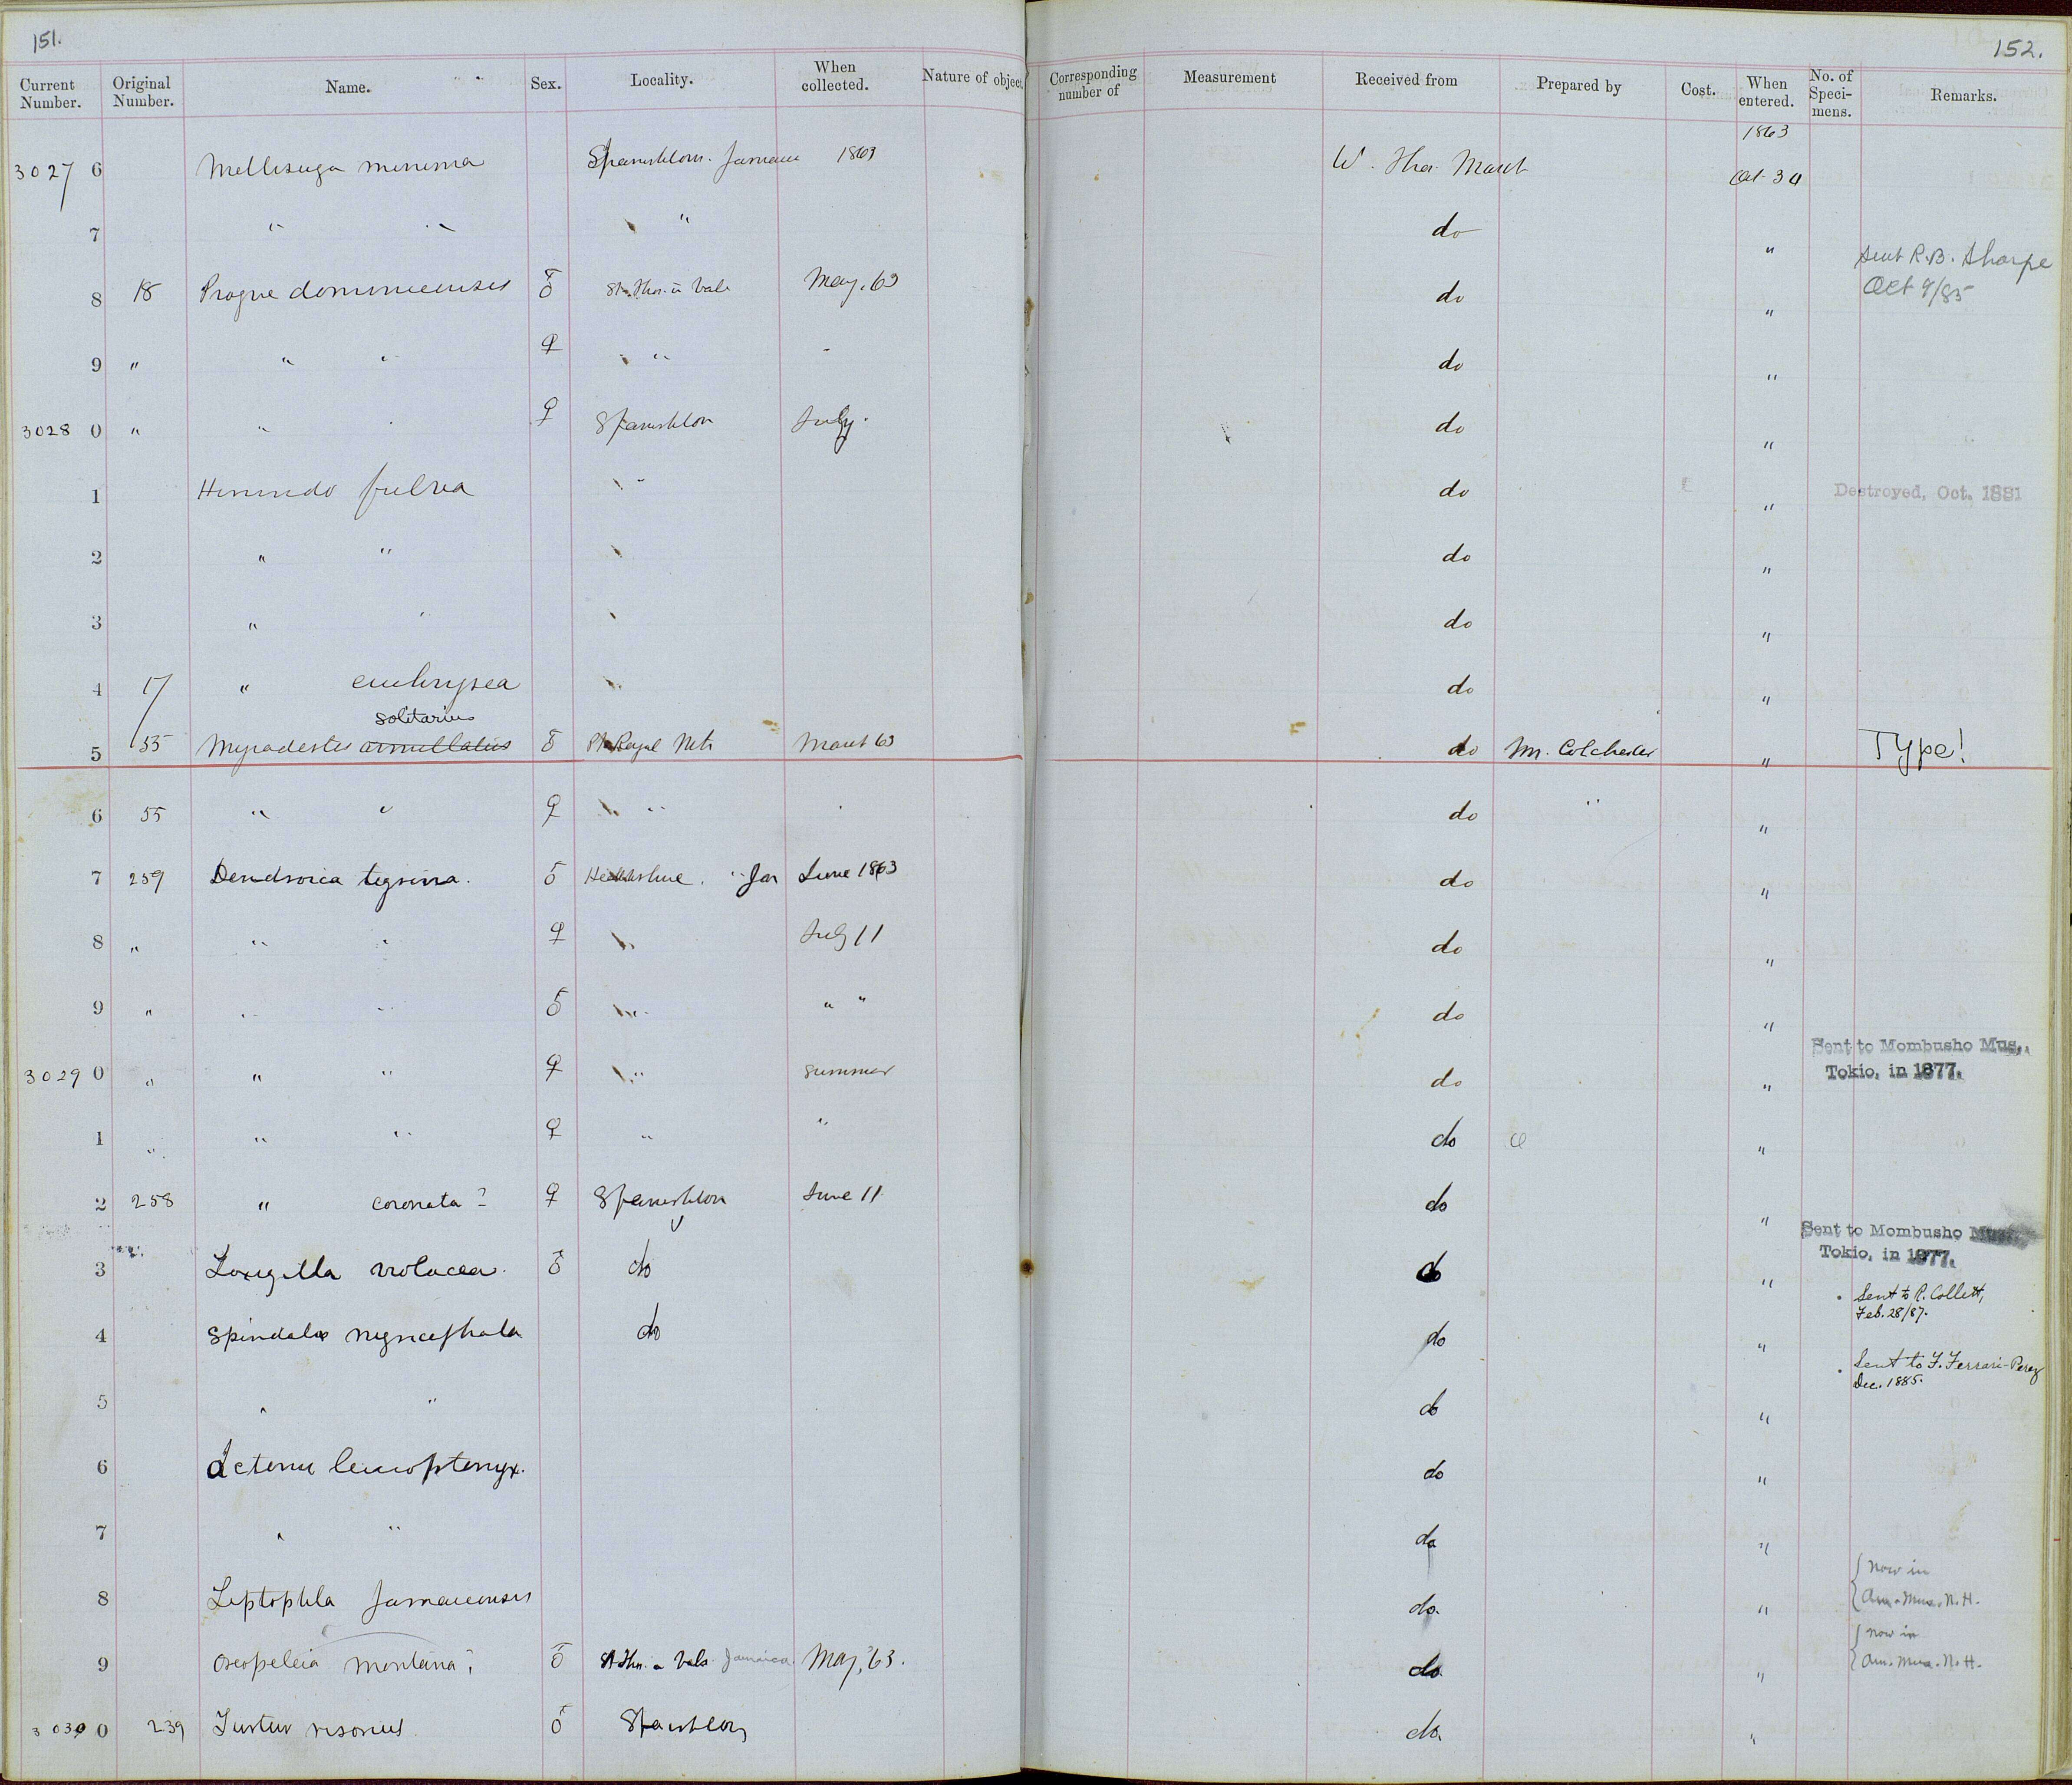 151.
152.
Current Number. Original Number. Name. Sex. Locality. When collected. Nature of object Corresponding number of Measurement Received from Prepared by Cost. When entered. No. of Speci-mens. Remarks.
1863
3027 6 Mellisuga minima Spanishtown. Jamaica 1863 W. Thos. March Oct 30
7 " " " do "
8 18 Progne dominicensis ♂ St. Thos. in Vale May, 63 do " Sent R.B. Sharpe
Oct 9/85
9 " " " ♀ " do "
3028 0 " " " ♀ Spanishton July. do "
1 Hirundo fulva " do " Destroyed, Oct. 1881
2 " " " do "
3 " " " do "
4 17 " euchrysea " do "
solitarius
5 55 Myiadestes armillatus ♂ Pt Royal Mts March 63 do M. Colchester " Type!
6 55 " " ♀ " " do " "
7 259 Dendroica tigrina. ♂ Healthshire. " Jam June 1863 do "
8 " " " ♀ " July 11 do "
9 " " " ♂ " " " do "
3029 0 " " " ♀ " summer do " Sent to Mombusho Mus.,
Tokio, in 1877.
1 " " " ♀ " " do "
2 258 " coronata ? ♀ Spanishton June 11 do "
Sent to Mombusho Mus.,
Tokio, in 1877.
3 Loxigilla violacea. ♂ do do "
Sent to R. Collett,
Feb. 28/87.
4 Spindalis nigricephala do do "
Sent to F. Ferrari-Perez
Dec. 1885.
5 " " do "
6 Icterus leucopteryx. do "
7 " " do "
8 Leptoptila Jamaicensis do. " Now in
Am. Mus. N.H.
9 Oreopeleia montana? ♂ St Thos. in Vale Jamaica. May, '63. do. " Now in
Am. Mus. N.H.
3030 0 239 Turtur risorius ♂ Spanishton do. "